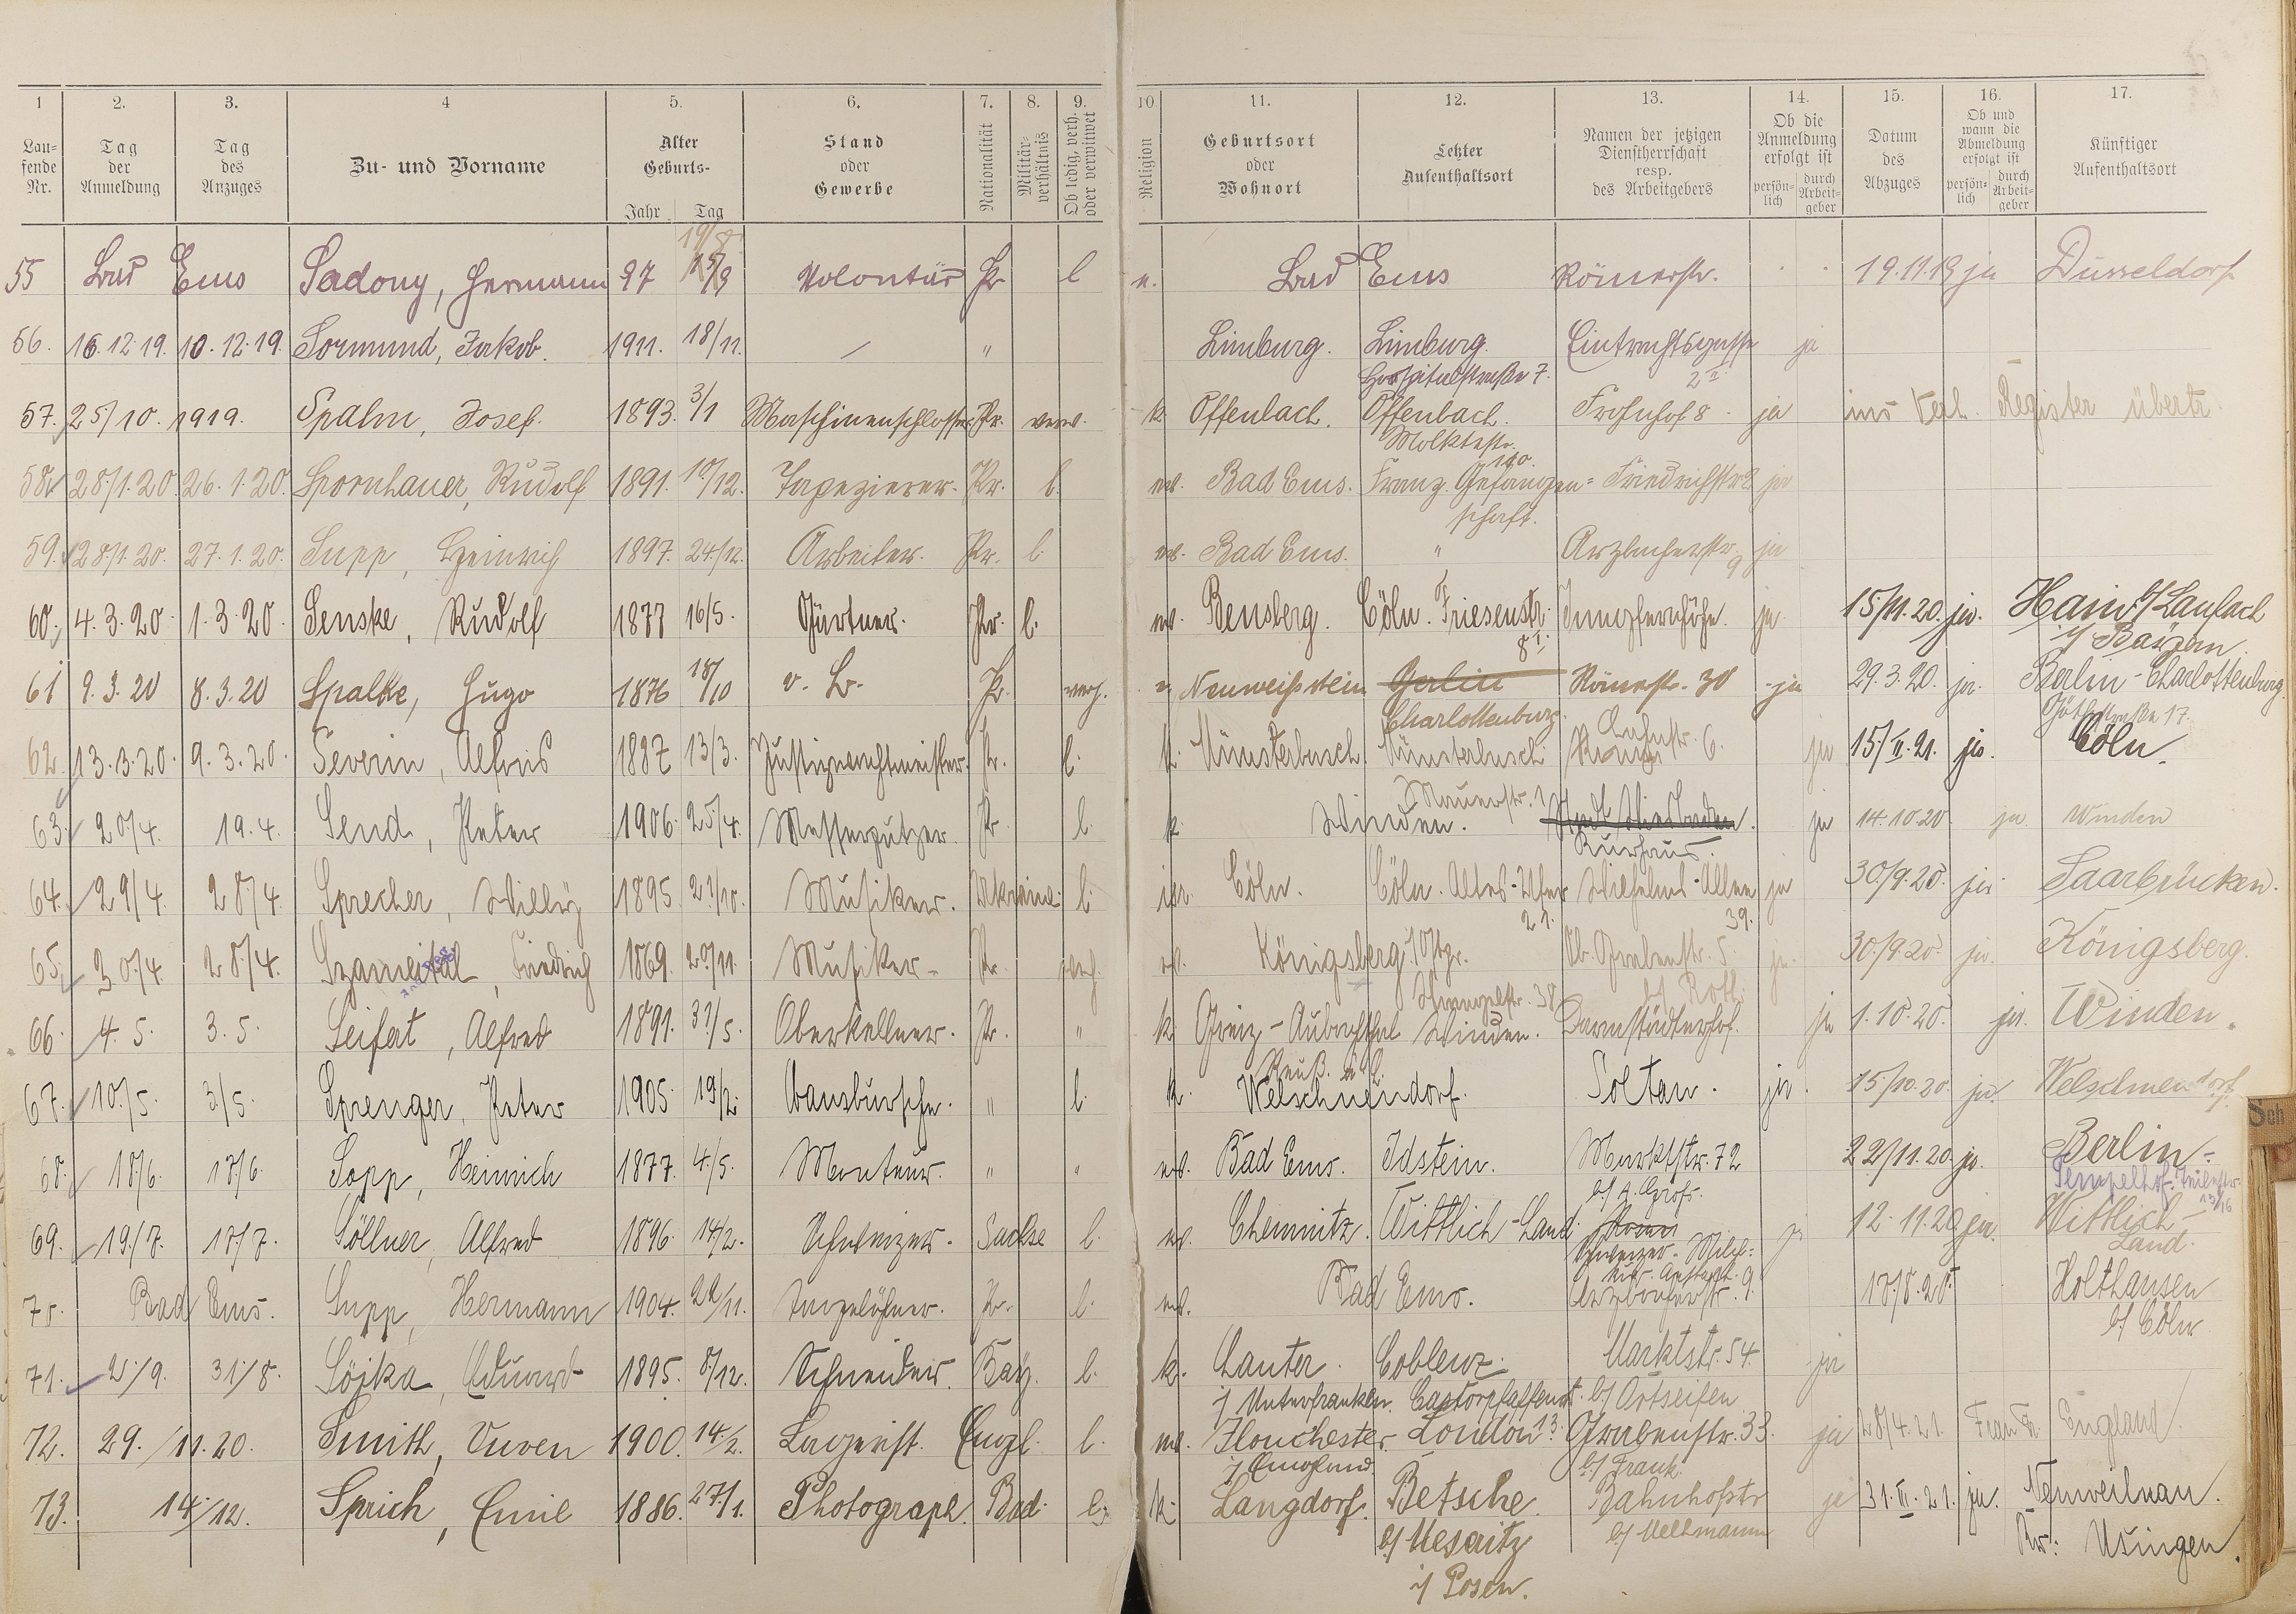 1 2. 3. 4 5. 6. 7. 8. 9. 10 11. 12. 13. 14. 15. 16. 17.
Laufende Nr. Tag der Anmeldung Tag des Anzuges Zu- und Vorname Alter Geburts- Jahr Tag Stand oder Gewerbe Nationalität Militärverhältnis Ob ledig, verh. oder verwitwet Religion Geburtsort oder Wohnort Letzter Aufenthaltsort Namen der jetzigen Dienstherrschaft resp. des Arbeitgebers Ob die Anmeldung erfolgt ist persönlich durch Arbeitgeber Datum des Abzuges Ob und wann die Abmeldung erfolgt ist persönlich durch Arbeitgeber Künftiger Aufenthaltsort
19/8
55 Bad Ems Sadony, Hermann 97 15/9 Volontär Pr l e. Bad Ems Römerstr. 19.11.19 ja Düsseldorf
56. 16.12.19. 10.12.19. Sormund, Jakob. 1911. 18/11. / " Limburg. Limburg. Eintrachtsgasse ja
Hospitalstraße 7. 2
57. 25/10. 1919. Spalm, Josef. 1893. 3/1 Maschinenschlosser. Pr. verw. k. Offenbach. Offenbach. Frohnhof 8. ja ins Verh. Register übertr.
Molktestr. 110.
58. 28/1.20. 26.1.20. Spornhauer, Rudolf 1891. 10/12. Tapezierer. Pr. l. ev. Bad Ems. Franz. Gefangen= Friedrichstr 2 ja
schaft.
59. 28/1.20. 27.1.20. Supp, Heinrich 1897. 24/12. Arbeiter. Pr. l. ev. Bad Ems. " Arzbacherstr. 9 ja
60. 4.3.20. 1.3.20. Senske, Rudolf 1877 16/5. Gärtner. Pr. l. ev. Bensberg. Cöln. Friesenstr. Jungfernhöhe. ja. 15/11.20. ja. Hain b/ Laufach
8 i/ Bayern.
61 9.3.20 8.3.20 Spalke, Hugo 1876 18/10 Pr. verh. e Neuweißstein Berlin Römerstr. 30 ja 29.3.20. ja. Berlin-Charlottenburg
Charlottenburg. Göthestraße 17
62. 13.3.20. 9.3.20. Severin, Alfons 1887 13/3. Justizwachtmeister. Pr. l. k. Münsterbusch. Münsterbusch. Lahnstr. 6. ja 15/II.21. ja. Cöln.
Mauerstr. 1
63. 20/4. 19.4. Send, Peter 1906. 25/4. Messerputzer. Pr. l. k. Winden. Stadt Wiesbaden. ja 14.10.20 ja. Winden
Kurhaus.
64. 29/4. 28/4. Sprecher, Willy 1895. 21/10. Musiker. Ukraine. l. isr. Cöln. Cöln. Altes-Ufer Wilhelms-Allee ja 30/9.20. ja. Saarbrücken.
21. 39.
65. 30/4. 28/4. Szameital, Friedrich 1869. 20/11. Musiker. Pr. verh. ev. Königsberg. Ob. Grabenstr. 5. ja. 30/9.20. ja. Königsberg.
38 b/ Roth.
66. 4.5. 3.5. Seifat, Alfred 1891. 31/5. Oberkellner. Pr. " k. Greiz-Aubachthal Winden. Darmstädterhof. ja 1.10.20. ja. Winden.
Reuß ä. L.
67. 10./5. 3/5. Sprenger, Peter 1905. 19/2. Hausbursche. " l. k. Welschneudorf. Soltau. ja. 15/10.20. ja. Welschneudorf.
68. 18/6. 18/6. Sopp, Heinrich 1877. 4/5. Monteur. " " ev. Bad Ems. Idstein. Marktstr. 72 22/11.20. ja. Berlin-
Tempelhof. 13/16
69. 19./7. 18/7. Söllner, Alfred 1896. 14/2. Schweizer. Sachse l. ev. Chemnitz. Wittlich-Land. ja 12.11.20 ja. Wittlich-
Schweizer-Milch= Land.
70. Bad Ems. Supp, Hermann 1904. 22/11. Tagelöhner. Pr. l. ev. Bad Ems. Arzbacherstr. 9. 18/8.20. Holthausen
b/ Cöln
71. 2./9. 31/8. Söjka, Eduard 1895. 8/12. Schneider. Bay. l. k. Lauter. Coblenz. Marktstr. 54. ja
i/ Unterfranken. b/ Ortseifen
72. 29./11.20. Smith, 1900. 14/2. Lagerist. Engl. l. ev. London 13. Grabenstr. 33. ja 28/4.21. England
i/ England. b/ Frank.
73. 14/12. Sprich, Emil 1886. 27/1. Photograph. Bad. l. k. Langdorf. Betsche. Bahnhofstr ja 31.III.21. ja. Neuweilnau.
b/ Meseritz b/ Mellmann Kr: Usingen.
i/ Posen.